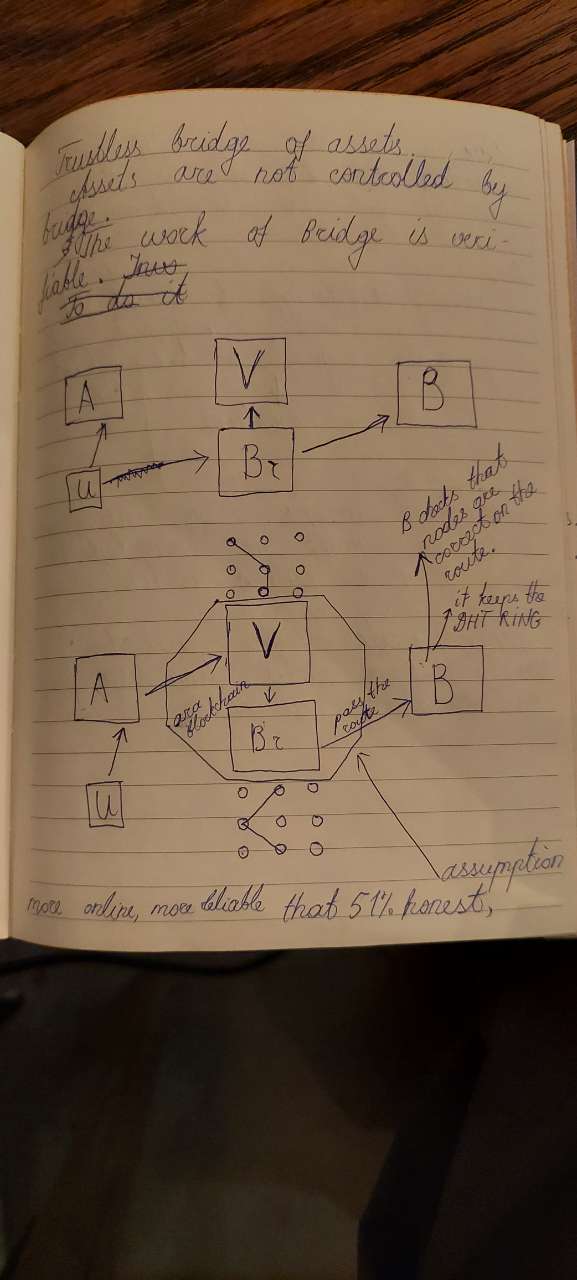 Trustless bridge of assets.
Assets are not controlled by
bridge.
The work of Bridge is veri-
fiable. Trus
To do it
A
V
B
U
Br
B checks that
nodes are
correct on the
route.
it keeps the
DHT RING
A
V
B
blockchain
pass the
route
Br
U
assumption
more online, more reliable that 51% honest,